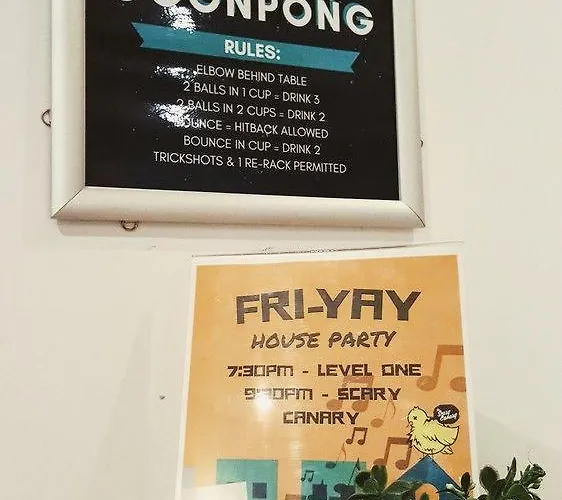 OONPONG
RULES:
ELBOW BEHIND TABLE
2 BALLS IN 1 CUP = DRINK 3
2 BALLS IN 2 CUPS = DRINK 2
BOUNCE = HITBACK ALLOWED
BOUNCE IN CUP = DRINK 2
TRICKSHOTS & 1 RE-RACK PERMITTED
FRI-YAY
HOUSE PARTY
7:30PM - LEVEL ONE
9:30PM - SCARY
CANARY
Scary
Canary